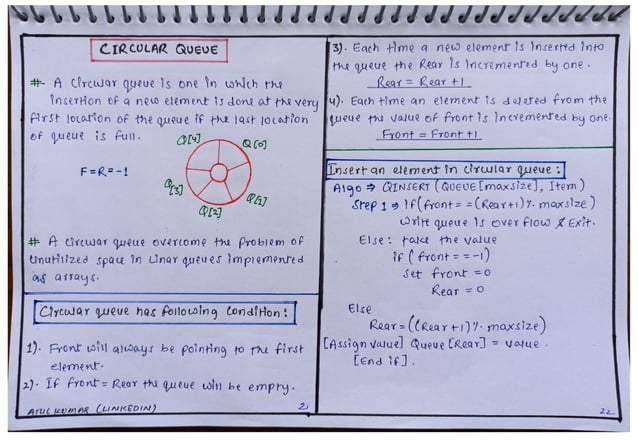 CIRCULAR QUEUE
# A Circular queue is one in which the
insertion of a new element is done at the very
first location of the queue if the last location
of queue is full.
Q[4]
Q[0]
F=R=-1
Q[3]
Q[1]
Q[2]
# A circular queue overcome the problem of
unutilized space in linar queues implemented
as arrays.
Circular queue has following condition:
1). Front will always be pointing to the first
element.
2). If front = Rear the queue will be empty.
ATUL KUMAR (LINKEDIN)
21
3). Each time a new element is Inserted into
the queue the Rear is incremented by one.
Rear = Rear +1
4). Each time an element is deleted from the
queue the value of front is incremented by one.
Front = Front +1
Insert an element in circular queue:
Algo ⇒ QINSERT (QUEUE[maxsize], Item)
Step 1 ⇒ if(front = =(Rear+1)% maxsize)
Write queue is over flow & Exit.
Else: take the value
if (front = = -1)
Set front =0
Rear = 0
Else
Rear = ((Rear +1)% maxsize)
[Assign value] Queue [Rear] = value.
[End if].
22